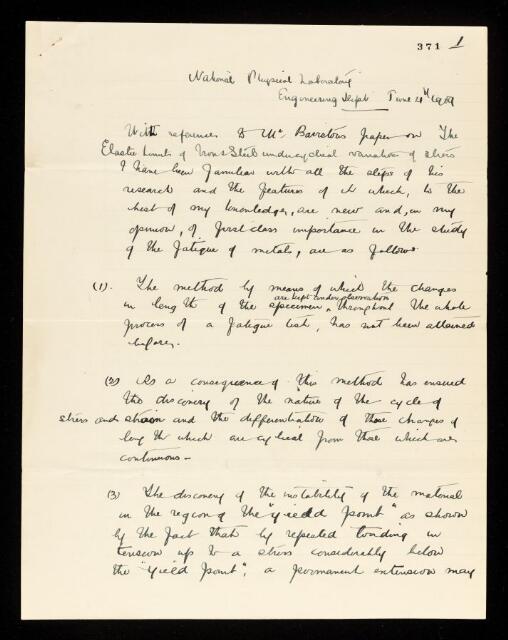 371 1
National Physical Laboratory
Engineering Dept June 4th 1909
With reference to Mr. Bairstow's paper on The
Elastic Limits of Iron & Steel under cyclical variations of stress
I have been familiar with all the steps of his
research and the features of it which, to the
best of my knowledge, are new and, in my
opinion, of first class importance in the study
of the fatigue of metals, are as follows
(1). The method by means of which the changes
are kept under observation
in length of the specimen, throughout the whole
process of a fatigue test, has not been attained
before.
(2) As a consequence of this method has ensued
the discovery of the nature of the cycle of
stress and strain and the differentiation of those changes of
length which are cyclical from those which are
continuous –
(3) The discovery of the instability of the material
in the region of the "yield point" as shown
by the fact that by repeated loading in
tension up to a stress considerably below
the "yield point", a permanent extension may